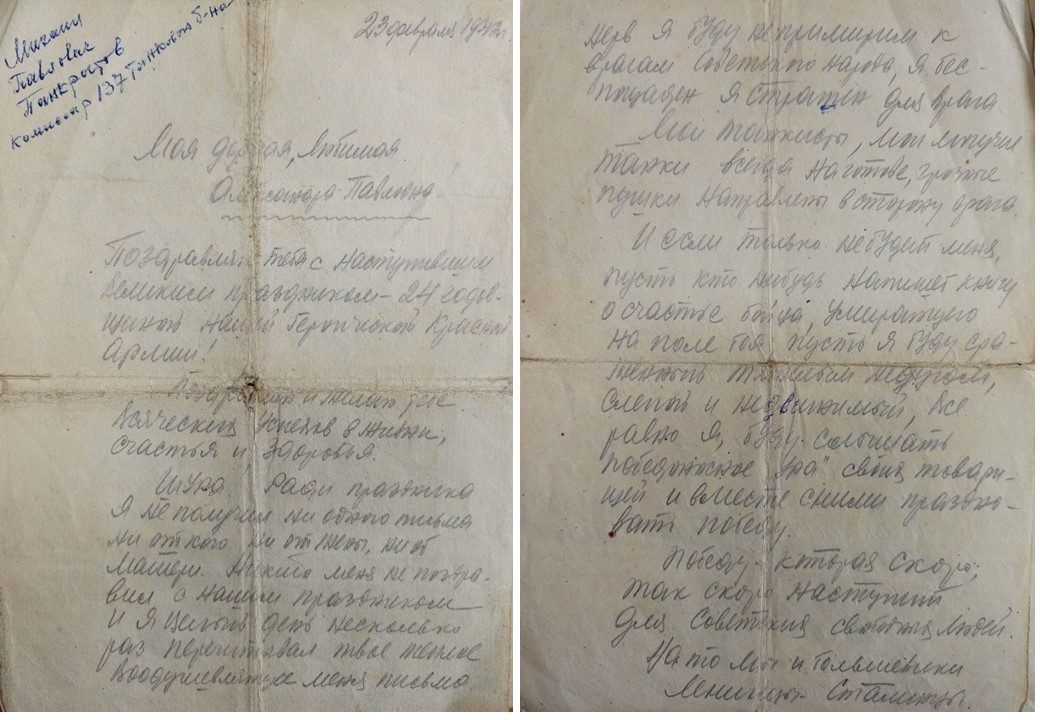 Михаил
Павлович
Панкратов
комиссар 137 танкового б-на
23 февраля 1942г.
Моя дорогая, любимая
Александра Павловна!
Поздравляю тебя с наступившим
великим праздником - 24 годов-
щиной нашей героической Красной
Армии!
Поздравляю и желаю тебе
всяческих успехов в жизни,
счастья и здоровья.
Шура, ради праздника
я не получил ни одного письма
ни от кого ни от жены, ни от
матери. Никто меня не поздра-
вил с нашим праздником
и я целый день несколько
раз перечитывал твое теплое
воодушевляющее меня письмо
нерв я буду непримирим к
врагам советского народа, я бес-
пощаден я страшен для врага.
Мои танкисты, мои могучие
танки всегда наготове, грозные
пушки направлены в сторону врага.
И если только не будет меня,
пусть кто нибудь напишет книгу
о счастье бойца, умирающего
на поле боя, пусть я буду сра-
женный тяжелым недугом,
слепой и недвижимый, все
равно я, буду слышать
победоносное "Ура" своих товари-
щей и вместе с ними праздно-
вать победу.
Победу - которая скоро,
так скоро наступит
для советских свободных людей.
На то мы и большевики
Ленинцы - Сталинцы.